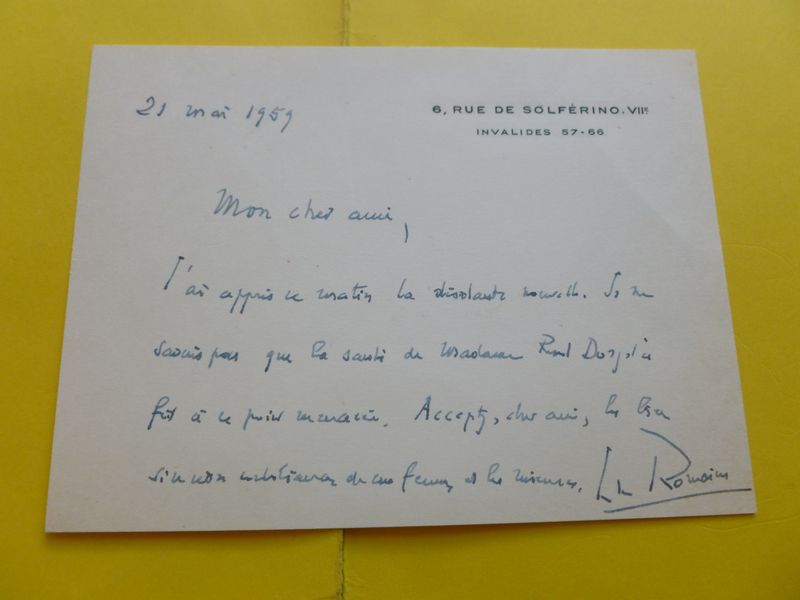 21 mai 1959
6, RUE DE SOLFÉRINO. VIIᴱ
INVALIDES 57-66
Mon cher ami,
J'ai appris ce matin la désolante nouvelle. Je ne
savais pas que la santé de Madame Dorgelès
fût à ce point menacée. Acceptez, cher ami, les
de ma femme et les miennes.
Romains